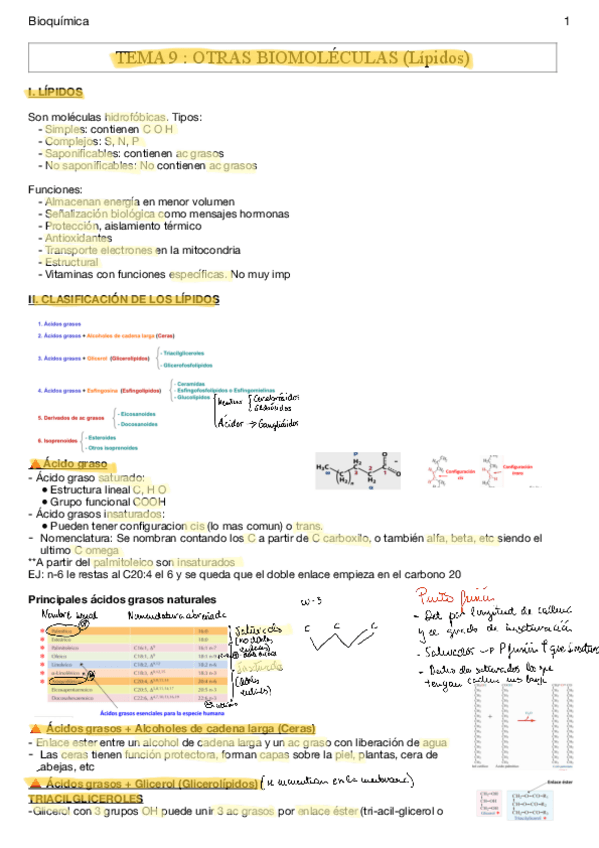 Bioquímica 1
TEMA 9 : OTRAS BIOMOLÉCULAS (Lípidos)
I. LÍPIDOS
Son moléculas hidrofóbicas. Tipos:
- Simples: contienen C O H
- Complejos: S, N, P
- Saponificables: contienen ac grasos
- No saponificables: No contienen ac grasos
Funciones:
- Almacenan energía en menor volumen
- Señalización biológica como mensajes hormonas
- Protección, aislamiento térmico
- Antioxidantes
- Transporte electrones en la mitocondria
- Estructural
- Vitaminas con funciones específicas. No muy imp
II. CLASIFICACIÓN DE LOS LÍPIDOS
1. Ácidos grasos
2. Ácidos grasos + Alcoholes de cadena larga (Ceras)
3. Ácidos grasos + Glicerol (Glicerolípidos)
- Triacilgliceroles
- Glicerofosfolípidos
4. Ácidos grasos + Esfingosina (Esfingolípidos)
- Ceramidas
- Esfingofosfolípidos o Esfingomielinas
- Glucolípidos
Neutros
Cerebrósidos
Globósidos
Ácidos → Gangliósidos
5. Derivados de ac grasos
- Eicosanoides
- Docosanoides
6. Isoprenoides
- Esteroides
- Otros isoprenoides
Ácido graso
- Ácido graso saturado:
• Estructura lineal C, H O
• Grupo funcional COOH
- Ácido grasos insaturados:
• Pueden tener configuracion cis (lo mas comun) o trans.
- Nomenclatura: Se nombran contando los C a partir de C carboxilo, o también alfa, beta, etc siendo el
ultimo C omega
**A partir del palmitoleico son insaturados
EJ: n-6 le restas al C20:4 el 6 y se queda que el doble enlace empieza en el carbono 20
Configuración
cis
Configuración
trans
Principales ácidos grasos naturales
Nombre usual Nomenclatura abreviada
Saturados
w-3
C C C
Punto fusión
- Del por longitud de cadena
y de grado de insaturación
Ácidos grasos esenciales para la especie humana
Ácidos grasos + Alcoholes de cadena larga (Ceras)
- Enlace ester entre un alcohol de cadena larga y un ac graso con liberación de agua
- Las ceras tienen función protectora, forman capas sobre la piel, plantas, cera de
abejas, etc
Ácidos grasos + Glicerol (Glicerolípidos) (se encuentran en la membrana)
Enlace éster
TRIACILGLICEROLES
-Glicerol con 3 grupos OH puede unir 3 ac grasos por enlace éster (tri-acil-glicerol o